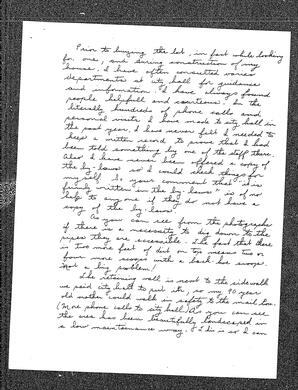 Prior to buying the lot, in fact while looking
for one, and during construction of my
house. I have often consulted various
departments at city hall for guidance
and information. I have always found
people helpful and courteous. In the
literally hundreds of phone calls and
personal visits I have made to city hall in
the past year, I have never felt I needed to
keep a written record to prove that I had
been told something by one of the staff there.
Also I have never been offered a copy of
the by-laws so I could check things for
my self. So your comment that "it is
firmly written in the by-laws" is of no
help to any one if they do not have a
copy of the by-laws.
As you can see from the photographs
if there is a necessity to dig down to the
pipes they are accessible. The fact that there
is two more feet of dirt on top means two or
four more scoops with a back hoe scoop.
Not a big problem!
The retaining wall is next to the sidewalk
we paid city hall to put in, so my 90 year
old mother could walk in safety to the mail box.
(More phone calls to city hall) As you can see
the area has been beautifully landscaped in
a low maintenance way. This is so I can